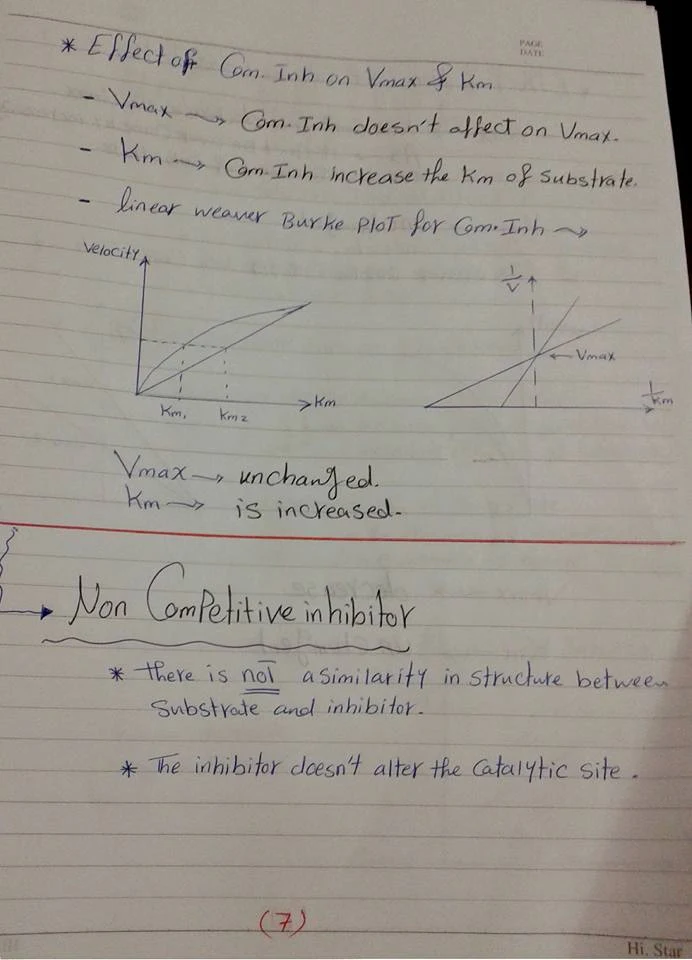 PAGE
DATE
* Effect of Com. Inh on Vmax & Km
- Vmax → Com. Inh doesn't affect on Vmax.
- Km → Com. Inh increase the Km of substrate.
- linear weaver Burke PLOT for Com. Inh →
Velocity
Km
Km1
Km2
1/V
Vmax
1/Km
Vmax → unchanged.
Km → is increased.
Non Competitive inhibitor
* there is not a similarity in structure between
Substrate and inhibitor.
* The inhibitor doesn't alter the Catalytic site.
(7)
Hi. Star